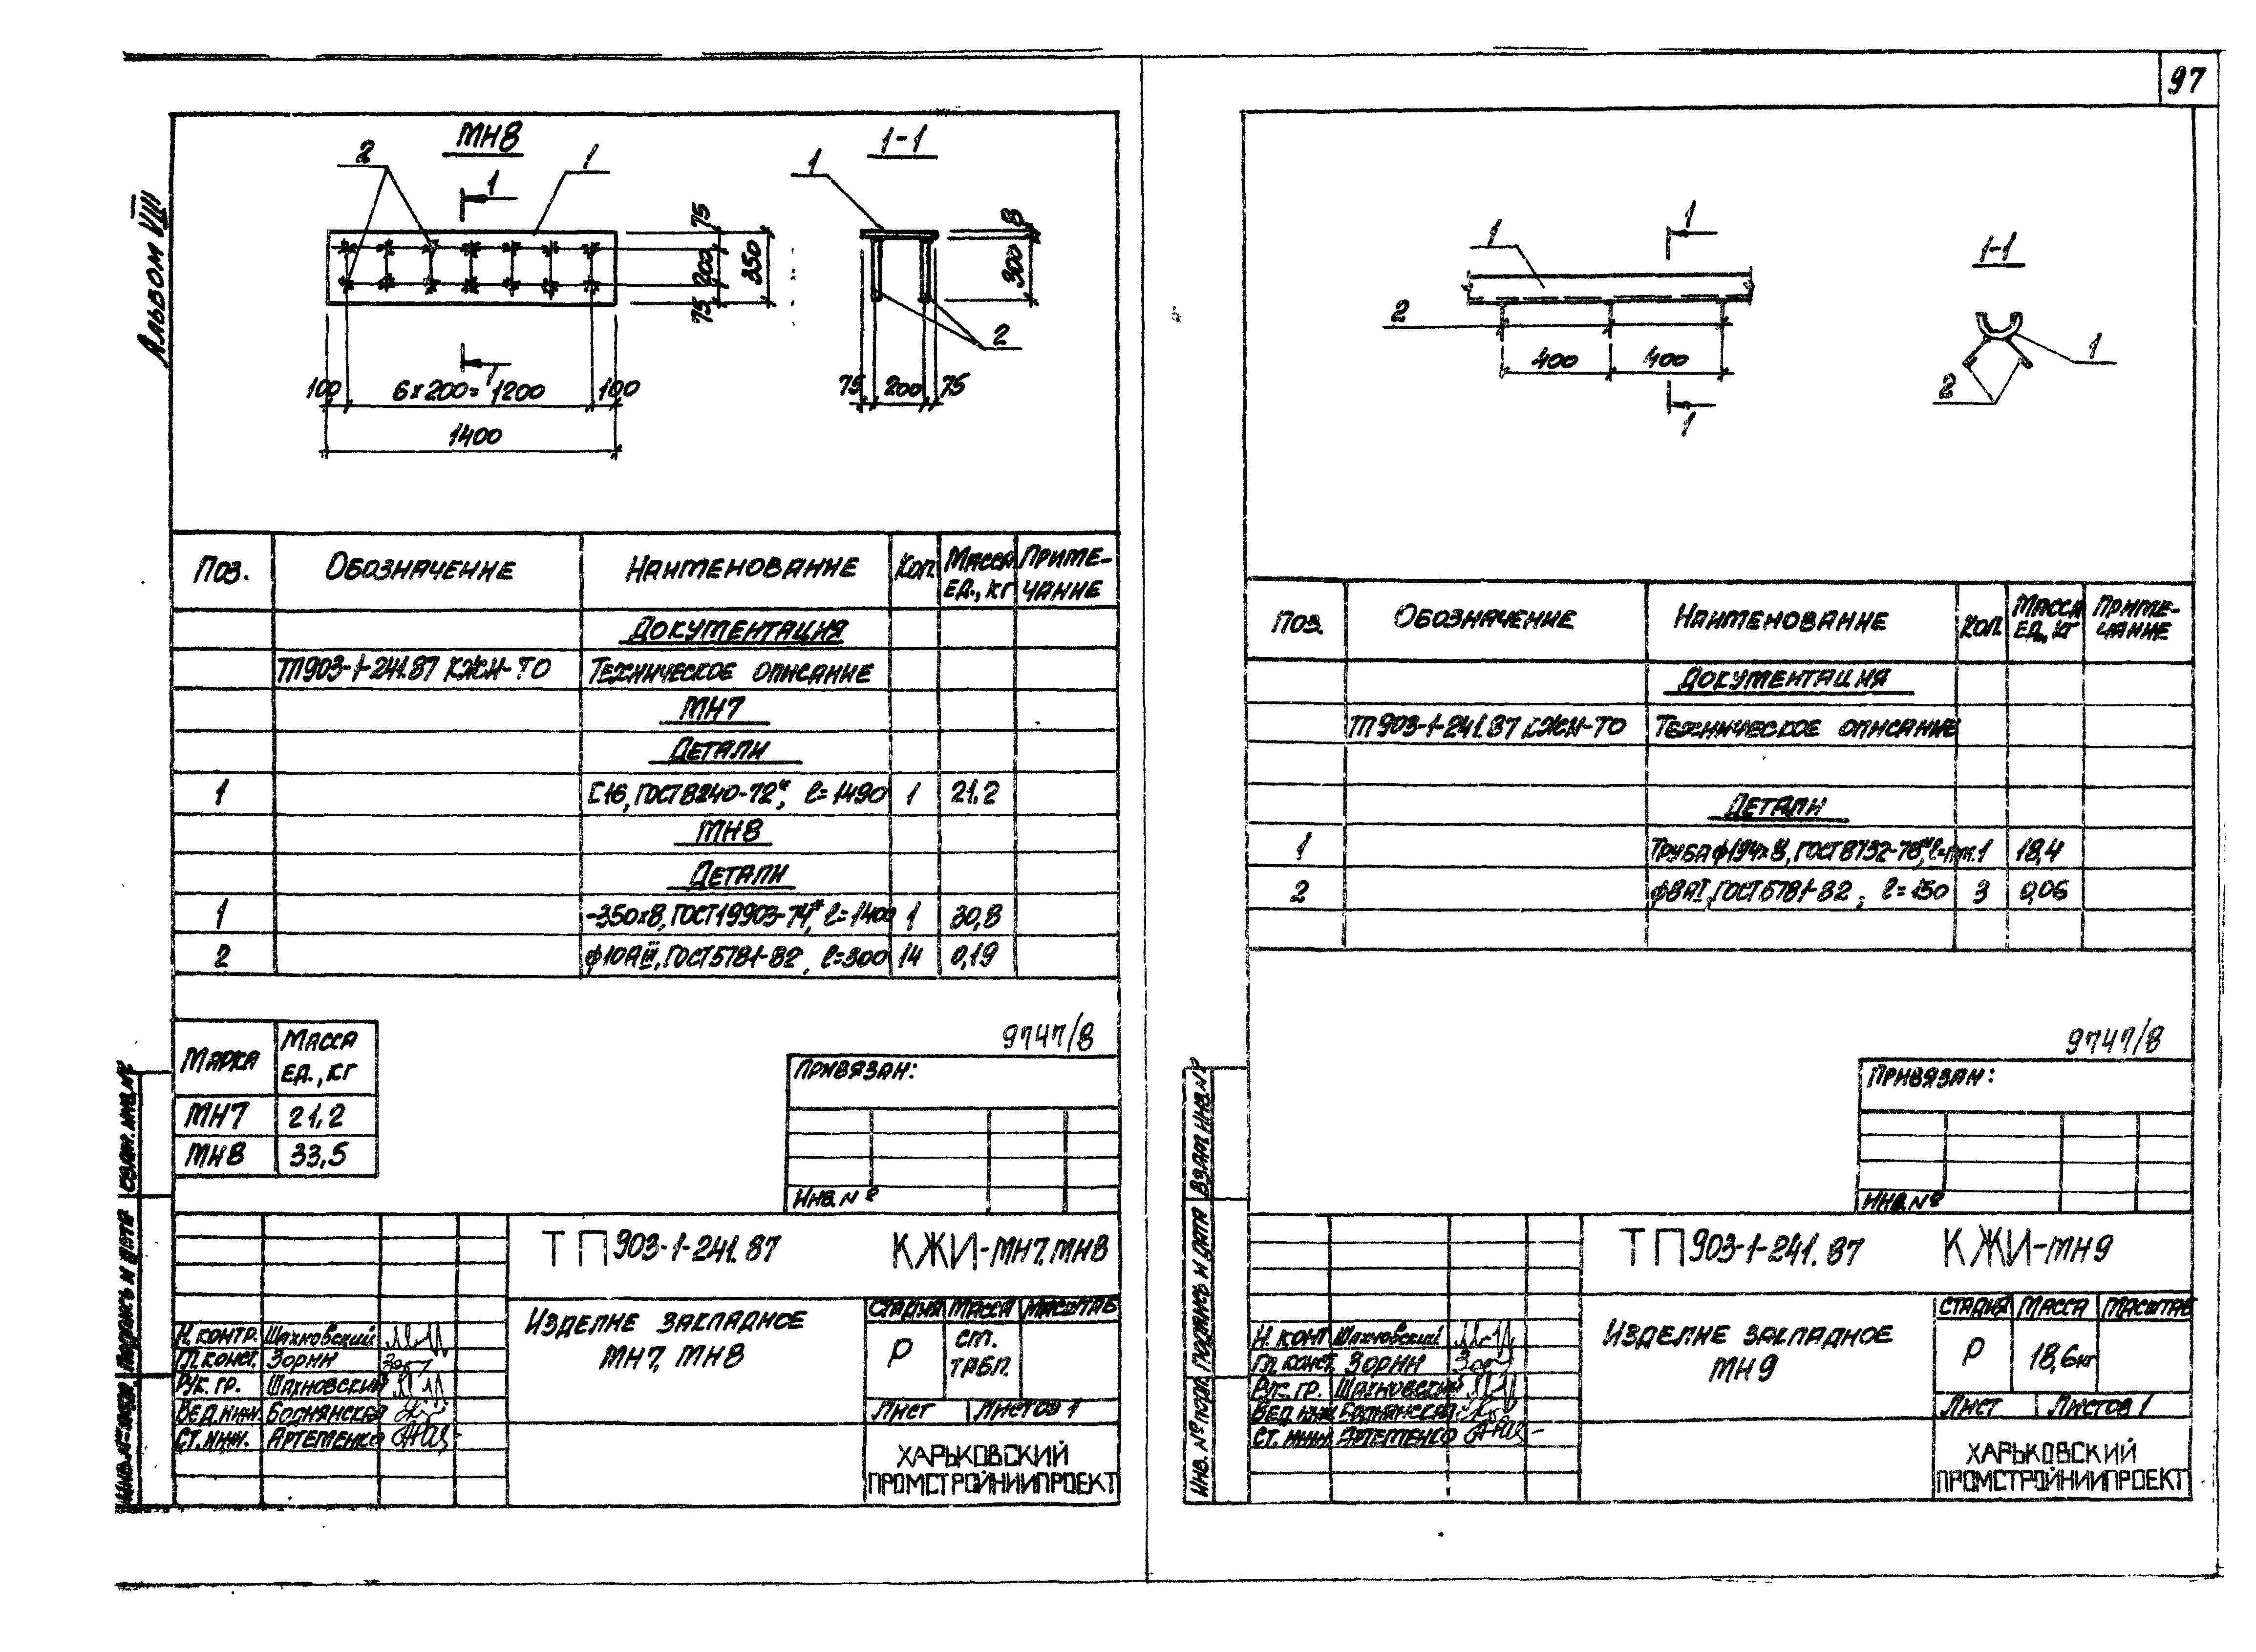 97
Альбом VIII
МН8
1-1
2
1
1
1
75
200
75
350
8
300
2
1
100
6х200=1200
100
1400
75
200
75
Поз.
Обозначение
Наименование
Кол.
Масса ед., кг
Приме-
чание
Документация
ТП 903-1-241.87 КЖИ-ТО
Техническое описание
МН7
Детали
1
[16, ГОСТ 8240-72*, ℓ=1490
1
21.2
МН8
Детали
1
-350х8, ГОСТ 19903-74*, ℓ=1400
1
30,8
2
ф10АIII, ГОСТ 5781-82, ℓ=300
14
0,19
Марка
Масса
ед., кг
МН7
21,2
МН8
33,5
9747/8
Привязан:
Инв. №
Взам. инв. №
Подпись и дата
Инв. № подл.
ТП 903-1-241.87
КЖИ-МН7, МН8
Изделие закладное
МН7, МН8
Стадия
Масса
Масштаб
Р
См.
табл.
Лист
Листов 1
Н. контр. Шахновский
Гл. конст. Зорин
Рук. гр. Шахновский
Вед. инж.
Ст. инж. Артеменко
ХАРЬКОВСКИЙ
ПРОМСТРОЙНИИПРОЕКТ
1
1
1-1
2
400
400
1
1
2
Поз.
Обозначение
Наименование
Кол.
Масса
ед., кг
Приме-
чание
Документация
ТП 903-1-241.87 КЖИ-ТО
Техническое описание
Детали
1
Труба ГОСТ 8732-78*
1
18,4
2
ф8АI, ГОСТ 5781-82, ℓ=150
3
0,06
9747/8
Привязан:
Инв. №
Взам. инв. №
Подпись и дата
Инв. № подл.
ТП 903-1-241.87
КЖИ-МН9
Изделие закладное
МН9
Стадия
Масса
Масштаб
Р
18,6кг
Лист
Листов 1
Н. конт Шахновский
Гл. конст. Зорин
Рук. гр. Шахновский
Вед. инж.
Ст. инж. Артеменко
ХАРЬКОВСКИЙ
ПРОМСТРОЙНИИПРОЕКТ